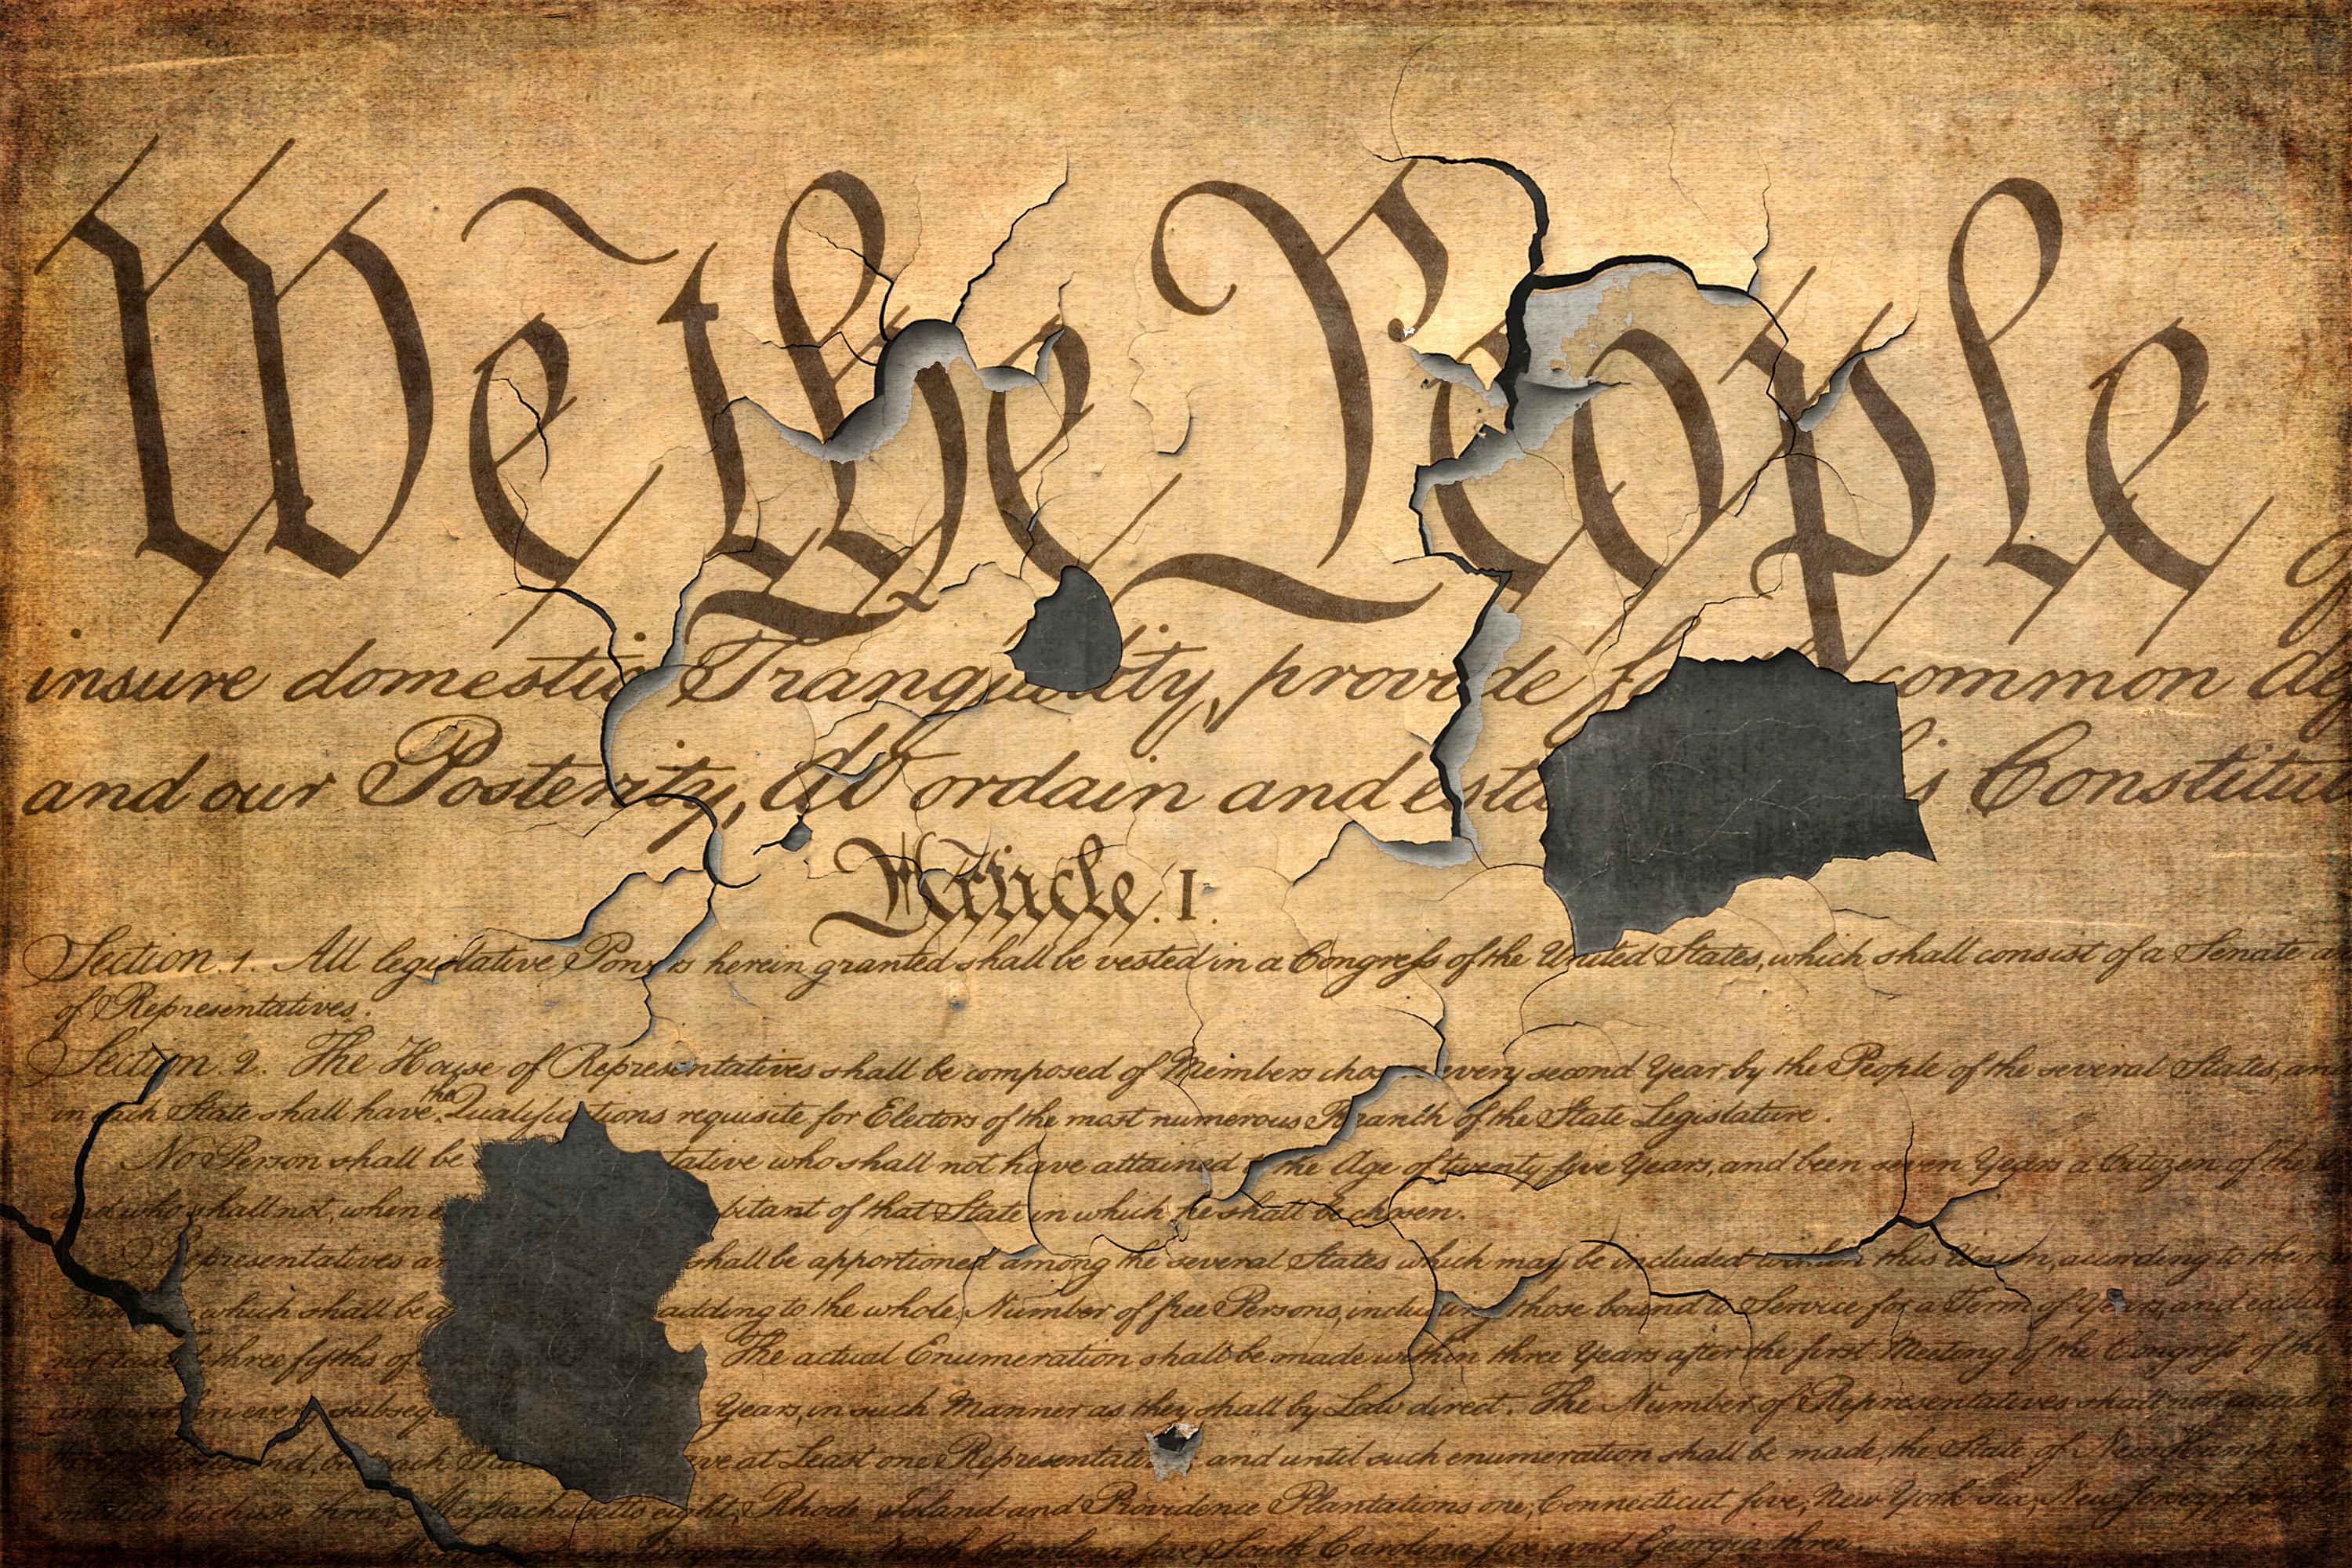 We the People
insure domestic Tranquility, provide common
and our Posterity, do ordain and Constitut
Article. I.
Section. 1. All legislative Powers herein granted shall be vested in a Congress of the United States, which shall consist of a Senate
of Representatives.
Section. 2. The House of Representatives shall be composed of Members chosen every second Year by the People of the several States, an
in each State shall have the Qualifications requisite for Electors of the most numerous Branch of the State Legislature.
No Person shall be tative who shall not have attained to the Age of twenty five Years, and been seven Years a Citizen of the
and who shall not, when bitant of that State in which he shall be chosen.
Representatives shall be apportioned among the several States which may be included within this Union, according to their
which shall be adding to the whole Number of free Persons, including those bound to Service for a Term of Years, and
not three fifths of The actual Enumeration shall be made within three Years after the first Meeting of the Congress of the
and within every Years, in such Manner as they shall by Law direct. The Number of Representatives shall not
each at Least one Representative; and until such enumeration shall be made, the State of New
three, Massachusetts eight, Rhode Island and Providence Plantations one, Connecticut five, New York six, New Jersey
five, South Carolina five, and Georgia three.